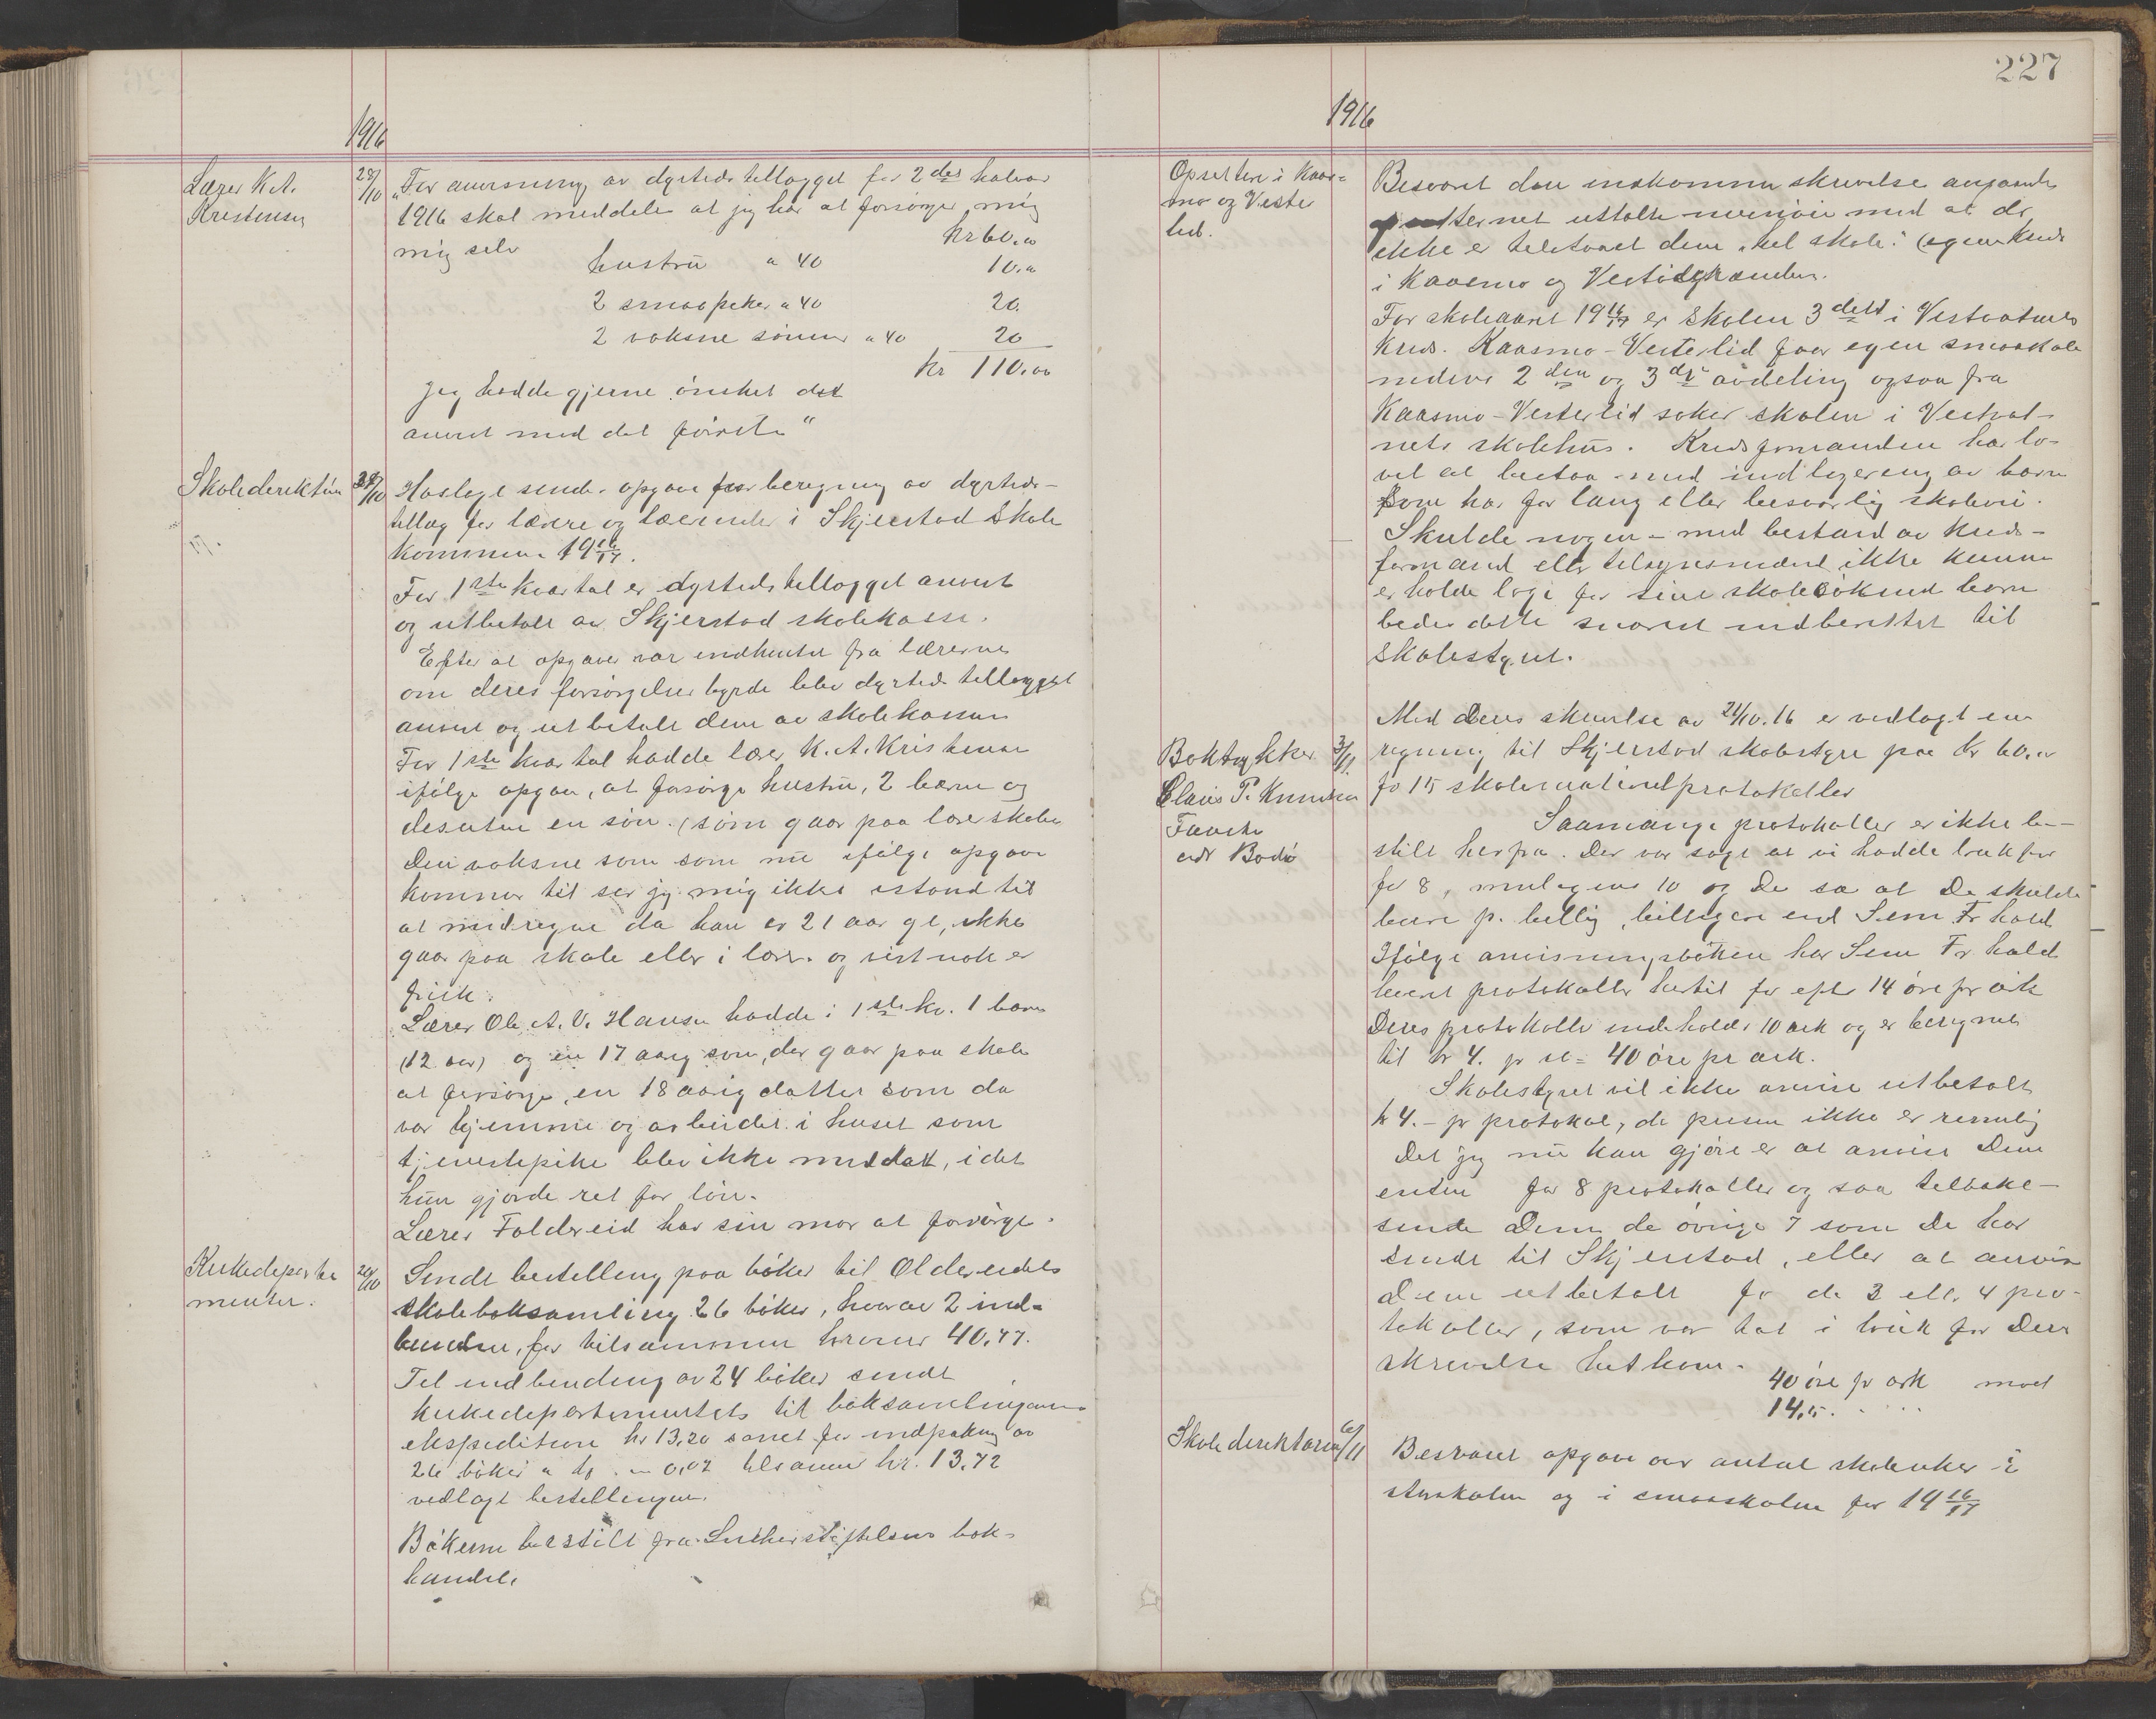 1916
Lærer K. A.
Kristensen
28/10
"For anvisning av dyrtidstillægget for 2det halvaar
1916 skal meddeles at jeg har at forsørge, mig
mig selv kr 60.00
hustru a 40 10.00
2 smaapiker a 40 20.
2 voksne sønner a 40 20
kr 110.00
Jeg hadde gjerne ønsket det
anvist med det første"
Skoledirektøren
28/10
Hoslagt sendes opgave for beregning av dyrtids-
tillæg for lærere og lærerinder i Skjerstad Skole
kommune 1916/17.
For 1ste kvartal er dyrtidstillægget anvist
og utbetalt av Skjerstad skolekasse.
Efter at opgaver var indhentet fra lærerne
om deres forsørgelses byrde blev dyrtidstillægget
anvist og utbetalt dem av skolekassen
For 1ste kvartal hadde lærer K. A. Kristensen
ifølge opgave, at forsørge hustru, 2 barn og
desuten en søn (som gaar paa lærerskole
Den voksne søn som nu ifølge opgave
kommer til ser jeg mig ikke istand til
at medregne da han er 21 aar gl, ikke
gaar paa skole eller i lære og vistnok er
frisk.
Lærer Ole A. V. Hansen hadde i 1ste kv. 1 barn
(12 aar) og en 17 aarig søn, der gaar paa skole
at forsørge, en 18 aarig datter som da
var hjemme og arbeidet i huset som
tjenestepike blev ikke meddat, idet
hun gjorde ret for løn.
Lærer Foldereid har sin mor at forsørge.
Kirkedeparte
mentet.
28/10
Sendt bestilling paa bøker til Oldereidets
skoleboksamling 26 bøker, hvorav 2 ind-
bundne, for tilsammen kroner 40,47.
Til indbinding av 24 bøker sendt
kirkedepartementets til boksamlingernes
ekspedition kr 13,20 samt for indpakning av
26 bøker a 0,02 tilsammen kr. 13,72
vedlagt bestillingen.
Bøkerne bestilt fra Lutherstiftelsens bok-
handel.
227
1916
Opsitterne i Kaas-
mo og Vester
lid.
Besvaret den indkomne skrivelse angaaende
uttalte misnøie med at de
ikke er tilstaaet dem "hel skole" (egen kreds
i Kaasmo og Vestid
For skoleaaret 1916/17 er skolen 3delt i Vestvatnets
kreds. Kaasmo-Vesterlid faar egen smaaskole
medens 2den og 3die avdeling ogsaa fra
Kaasmo-Vesterlid søker skolen i Vestvat-
nets skolehus. Kredsformanden har lo-
vet at bistaa med indlogering av barn
som har for lang eller besværlig skolevei.
Skulde nogen - med bestand av kreds-
formand eller tilsynsmænd ikke kunne
erholde logi for sine skolesøkende barn
bedes dette snarest indberettet til
Skolestyret.
Boktrykker
Claus P. Knudsen
Fauske
adr Bodø
3/11.
Med Deres skrivelse av 24/10.16 er vedlagt en
regning til Skjerstad skolestyre paa kr 60.00
for 15 skolematerielprotokoller
Saamange protokoller er ikke be-
stilt herfra. Der var sagt at vi hadde bruk for
for 8, muligens 10 og De sa at De skulde
levere p. billig, billigere end Sem Fr hald
Ifølge anvisningsboken har Sem Fr hald
levert protokoller hertil for efter 14 øre pr ark
Deres protokoller indeholder 10 ark og er beregnet
til kr 4. pr st = 40 øre pr ark.
Skolestyret vil ikke anvise utbetalt
kr 4.- pr protokol, da prisen ikke er rimelig
Det jeg nu kan gjøre er at anvise Dem
enten for 8 protokoller og saa tilbake-
sende Dem de øvrige 7 som De har
sendt til Skjerstad, eller at anvise
Dem utbetalt for de 3 ell. 4 pro-
tokoller, som var tat i bruk før Deres
skrivelse hitkom.
40 øre pr ark mot
14,5.
Skoledirektøren
6/11
Besvaret opgave over antal skoleuker i
storskolen og i smaaskolen for 1916/17